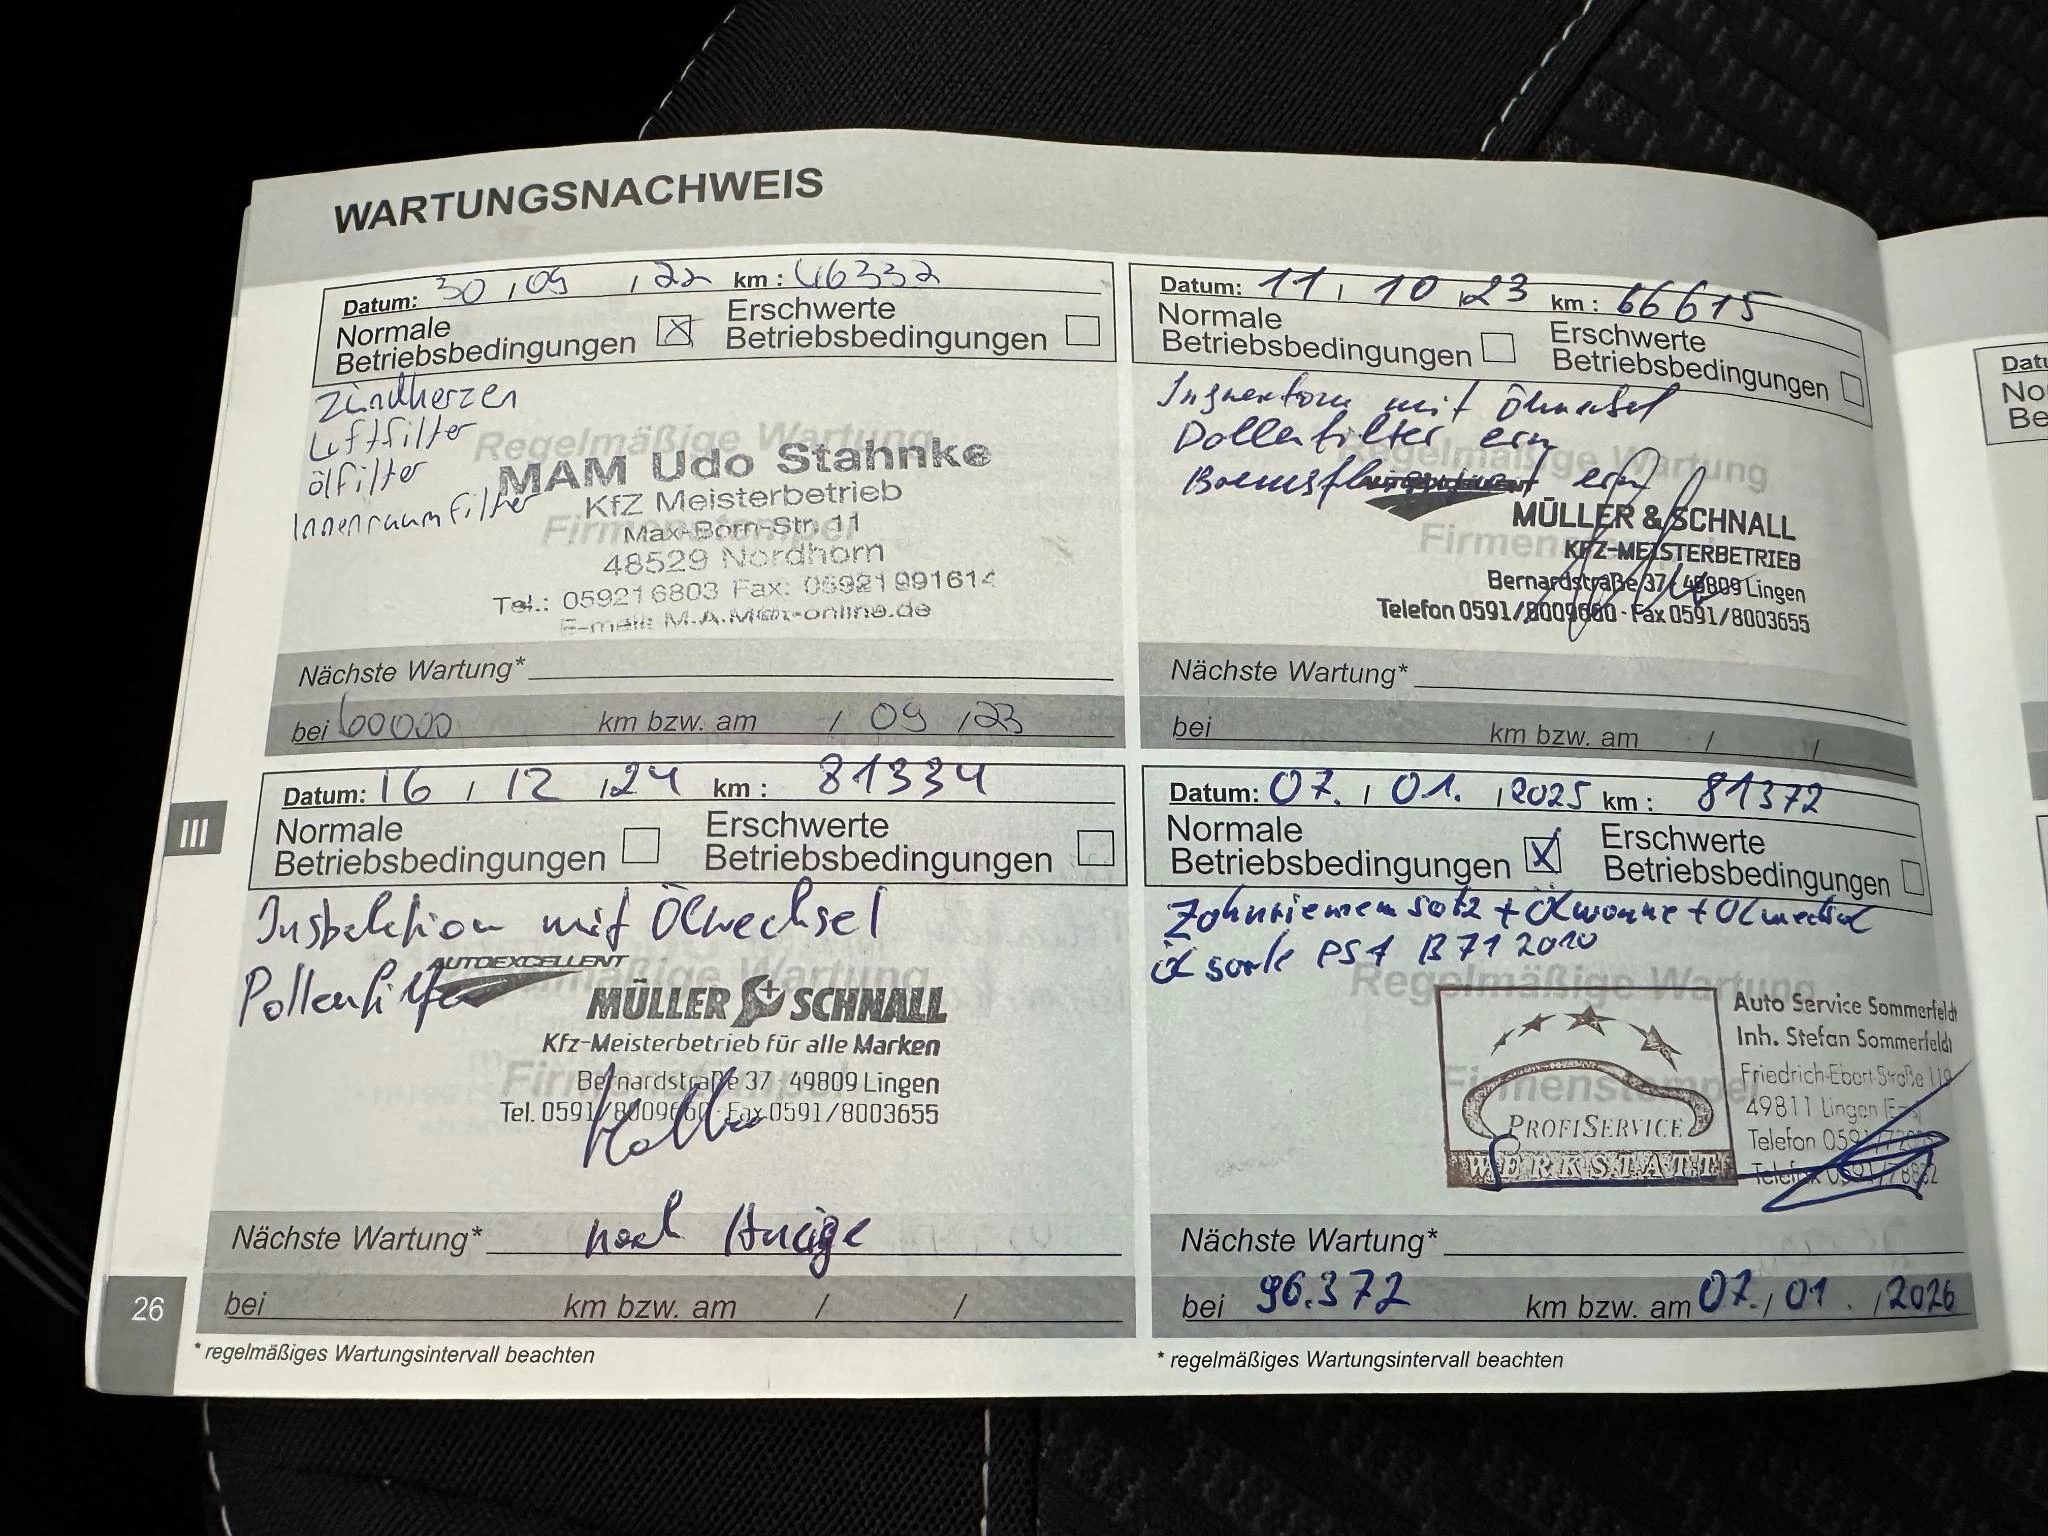 WARTUNGSNACHWEIS
Datum: 30 / 09 / 22 km : 46332
Normale
Betriebsbedingungen
Erschwerte
Betriebsbedingungen
Zündkerzen
Luftfilter
ölfilter
Innenraumfilter
Regelmäßige Wartung
Firmenstempel
MAM Udo Stahnke
KfZ Meisterbetrieb
Max-Born-Str. 11
48529 Nordhorn
Tel.: 05921 6803 Fax: 05921 991614
Nächste Wartung*
bei 60000 km bzw. am / 09 / 23
Datum: 11 / 10 / 23 km : 66615
Normale
Betriebsbedingungen
Erschwerte
Betriebsbedingungen
Inspektion mit Ölwechsel
Pollenfilter ern
Regelmäßige Wartung
Firmenstempel
MÜLLER & SCHNALL
KFZ-MEISTERBETRIEB
Bernardstraße 37 · 49809 Lingen
Telefon 0591/8009660 · Fax 0591/8003655
Nächste Wartung*
bei km bzw. am / /
Datum: 16 / 12 / 24 km : 81334
Normale
Betriebsbedingungen
Erschwerte
Betriebsbedingungen
Inspektion mit Ölwechsel
Pollenfilter
AUTOEXCELLENT
Regelmäßige Wartung
Firmenstempel
MÜLLER + SCHNALL
Kfz-Meisterbetrieb für alle Marken
Bernardstraße 37 · 49809 Lingen
Tel. 0591/8009660 · Fax 0591/8003655
Nächste Wartung* nach Anzeige
bei km bzw. am / /
Datum: 07. / 01. / 2025 km : 81372
Normale
Betriebsbedingungen
Erschwerte
Betriebsbedingungen
Zahnriemensatz + Ölwanne + Ölwechsel
Öl sorte PSA B71 2010
Regelmäßige Wartung
Firmenstempel
PROFISERVICE
WERKSTATT
Auto Service Sommerfeldt
Inh. Stefan Sommerfeldt
Friedrich-Ebert-Straße 119
49811 Lingen (Ems)
Telefon 0591
Telefax 0591/78832
Nächste Wartung*
bei 96.372 km bzw. am 07. / 01. / 2026
* regelmäßiges Wartungsintervall beachten
* regelmäßiges Wartungsintervall beachten
III
26
Datu
No
Be